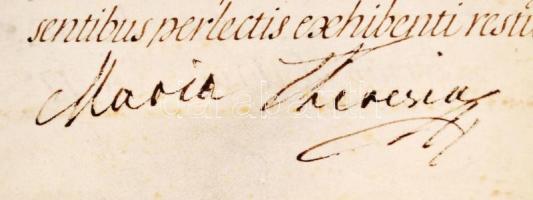 sentibus perlectis exhibenti restit
Maria Theresia